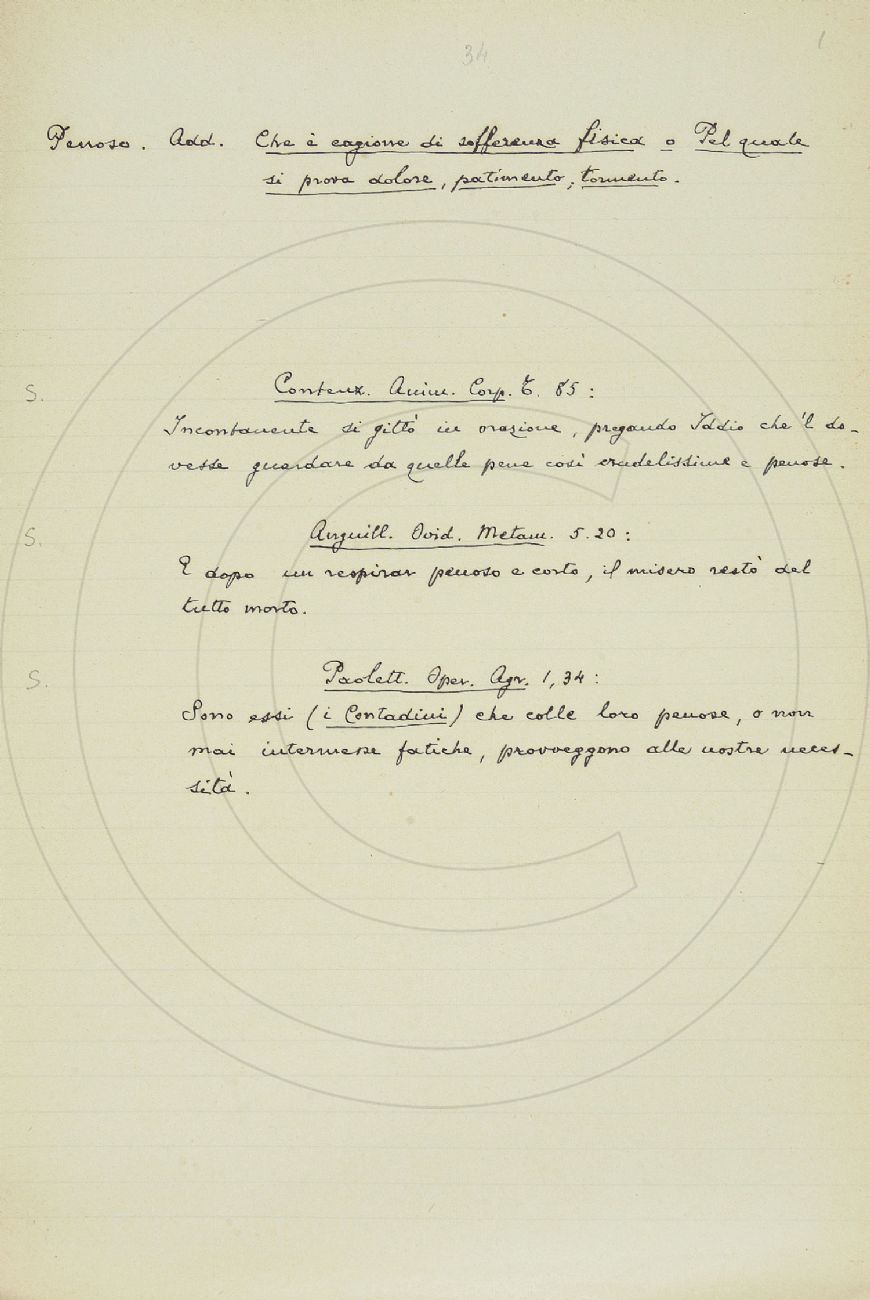 34
1
Penoso. Add. Che è cagione di sofferenza fisica o Pel quale
si prova dolore, patimento, tormento.
S. Contenz. Anim. Corp. T. 85:
Incontanente si gittò in orazione, pregando Iddio che 'l do-
vesse guardare da quelle pene così crudelissime e penose.
S. Anguill. Ovid. Metam. 5.20:
E dopo un respirar penoso e corto, il misero restò del
tutto morto.
S. Paolett. Oper. Agr. 1,34:
Sono essi (i Contadini) che colle loro penose, o non
mai intermesse fatiche, provveggono alle nostre neces-
sità.